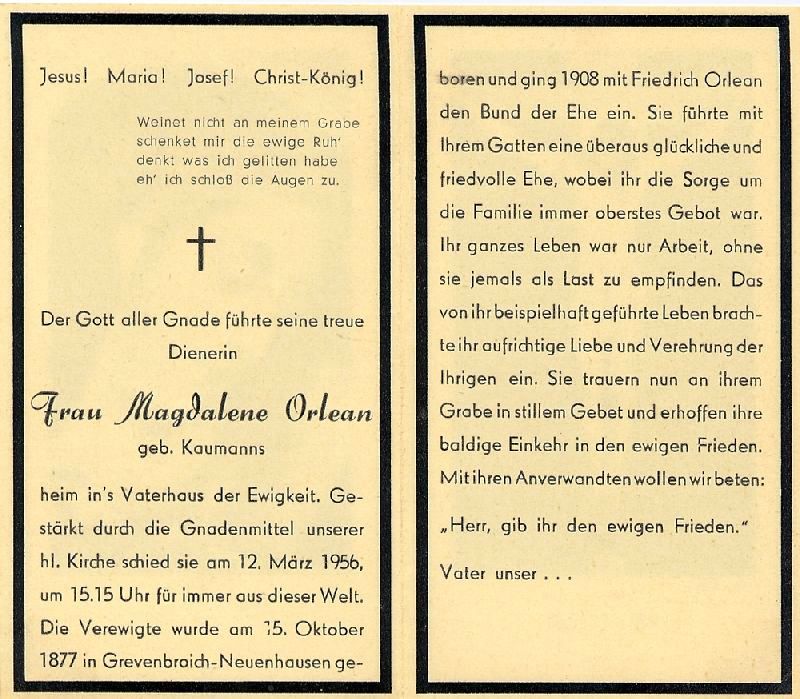 Jesus! Maria! Josef! Christ-König!
Weinet nicht an meinem Grabe
schenket mir die ewige Ruh'
denkt was ich gelitten habe
eh' ich schloß die Augen zu.
Der Gott aller Gnade führte seine treue
Dienerin
Frau Magdalene Orlean
geb. Kaumanns
heim in's Vaterhaus der Ewigkeit. Ge-
stärkt durch die Gnadenmittel unserer
hl. Kirche schied sie am 12. März 1956,
um 15.15 Uhr für immer aus dieser Welt.
Die Verewigte wurde am 15. Oktober
1877 in Grevenbroich-Neuenhausen ge-
boren und ging 1908 mit Friedrich Orlean
den Bund der Ehe ein. Sie führte mit
Ihrem Gatten eine überaus glückliche und
friedvolle Ehe, wobei ihr die Sorge um
die Familie immer oberstes Gebot war.
Ihr ganzes Leben war nur Arbeit, ohne
sie jemals als Last zu empfinden. Das
von ihr beispielhaft geführte Leben brach-
te ihr aufrichtige Liebe und Verehrung der
Ihrigen ein. Sie trauern nun an ihrem
Grabe in stillem Gebet und erhoffen ihre
baldige Einkehr in den ewigen Frieden.
Mit ihren Anverwandten wollen wir beten:
„Herr, gib ihr den ewigen Frieden."
Vater unser . . .